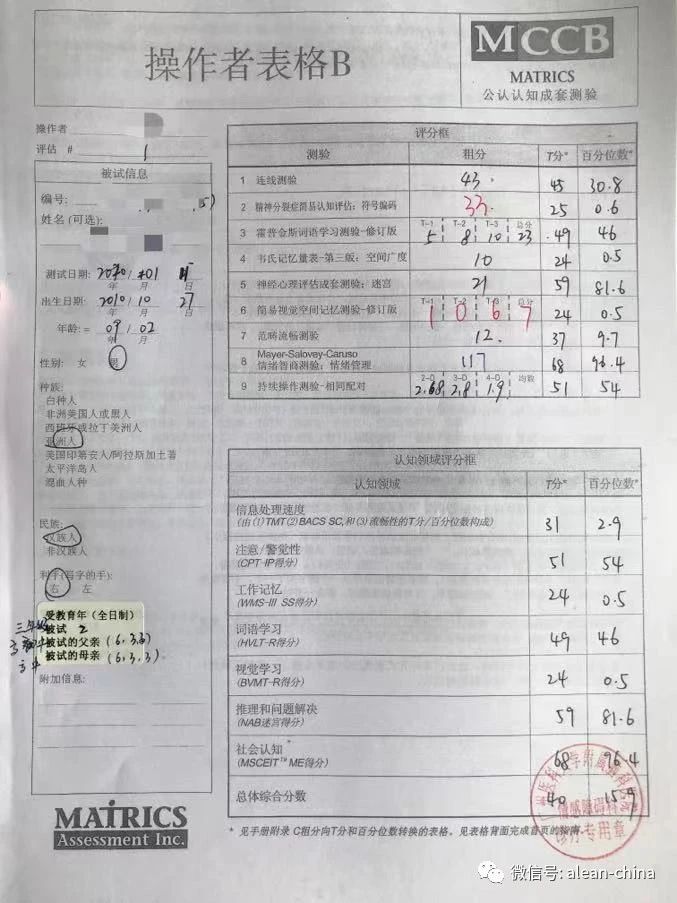 操作者表格B
MCCB
MATRICS
公认认知成套测验
操作者
评估 # 1
被试信息
编号:
姓名 (可选):
测试日期:
年 月 日
出生日期: 2010 / 10 27
年 月 日
年龄:= 09 / 02
年 月
性别: 女 男
种族:
白种人
非洲美国人或黑人
西班牙或拉丁美洲人
亚洲人
美国印第安人/阿拉斯加土著
太平洋岛人
混血人种
民族:
汉族人
非汉族人
利手(写字的手):
右 左
受教育年 (全日制)
三年级 被试 2
被试的父亲 (6.3.3)
被试的母亲 (6.3.3)
附加信息:
MATRICS
Assessment Inc.
评分框
测验 粗分 T分* 百分位数*
1 连线测验 43 45 30.8
2 精神分裂症简易认知评估: 符号编码 33 25 0.6
3 霍普金斯词语学习测验-修订版 T-1 5 T-2 8 T-3 10 总分 23 49 46
4 韦氏记忆量表-第三版: 空间广度 10 24 0.5
5 神经心理评估成套测验: 迷宫 21 59 81.6
6 简易视觉空间记忆测验-修订版 T-1 1 T-2 0 T-3 6 总分 7 24 0.5
7 范畴流畅测验 12. 37 9.7
8 Mayer-Salovey-Caruso
情绪智商测验: 情绪管理 117 68 96.4
9 持续操作测验-相同配对 2-D 2.68 3-D 2.8 4-D 1.9 均数 51 54
认知领域评分框
认知领域 T分* 百分位数*
信息处理速度
(由(1)TMT(2)BACS SC,和(3)流畅性的T分/百分位数构成) 31 2.9
注意/警觉性
(CPT-IP得分) 51 54
工作记忆
(WMS-III SS得分) 24 0.5
词语学习
(HVLT-R得分) 49 46
视觉学习
(BVMT-R得分) 24 0.5
推理和问题解决
(NAB迷宫得分) 59 81.6
社会认知
(MSCEIT™ME得分) 68 96.4
总体综合分数 40 15.9
* 见手册附录 C粗分向T分和百分位数转换的表格。见表格背面完成首页的指南.
诊疗专用章
微信号: alean-china